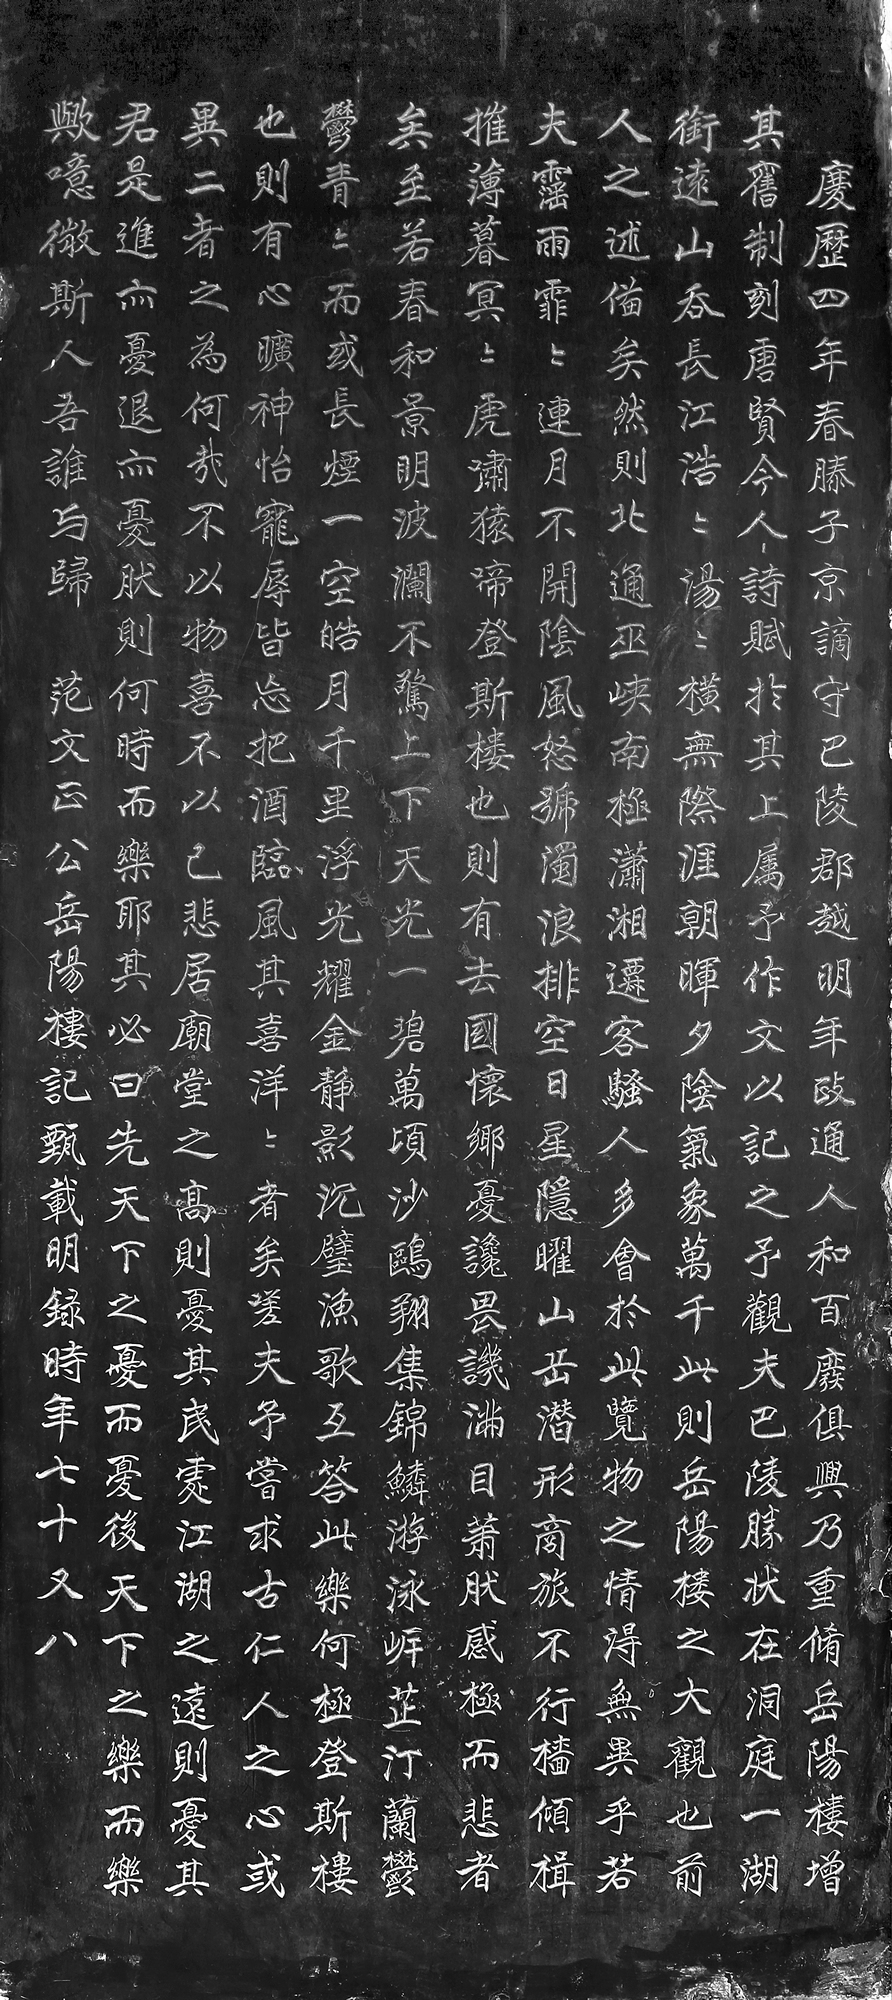 慶歷四年春滕子京謫守巴陵郡越明年政通人和百廢俱興乃重脩岳陽樓增
其舊制刻唐賢今人詩賦於其上属予作文以記之予觀夫巴陵勝狀在洞庭一湖
銜遠山吞長江浩〻湯〻橫無際涯朝暉夕陰氣象萬千此則岳陽樓之大觀也前
人之述俻矣然則北通巫峽南極瀟湘遷客騷人多會於此覽物之情得無異乎若
夫霪雨霏〻連月不開陰風怒號濁浪排空日星隱曜山岳潛形商旅不行檣傾楫
摧薄暮冥〻虎嘯猿啼登斯樓也則有去國懷鄉憂讒畏譏滿目蕭肰感極而悲者
矣至若春和景明波瀾不驚上下天光一碧萬頃沙鷗翔集錦鱗游泳岸芷汀蘭鬱
鬱青〻而或長煙一空皓月千里浮光耀金靜影沉璧漁歌互答此樂何極登斯樓
也則有心曠神怡寵辱皆忘把酒臨風其喜洋〻者矣嗟夫予嘗求古仁人之心或
異二者之為何哉不以物喜不以己悲居廟堂之高則憂其民處江湖之遠則憂其
君是進亦憂退亦憂肰則何時而樂耶其必曰先天下之憂而憂後天下之樂而樂
歟噫微斯人吾誰与歸 范文正公岳陽樓記甄載明録時年七十又八